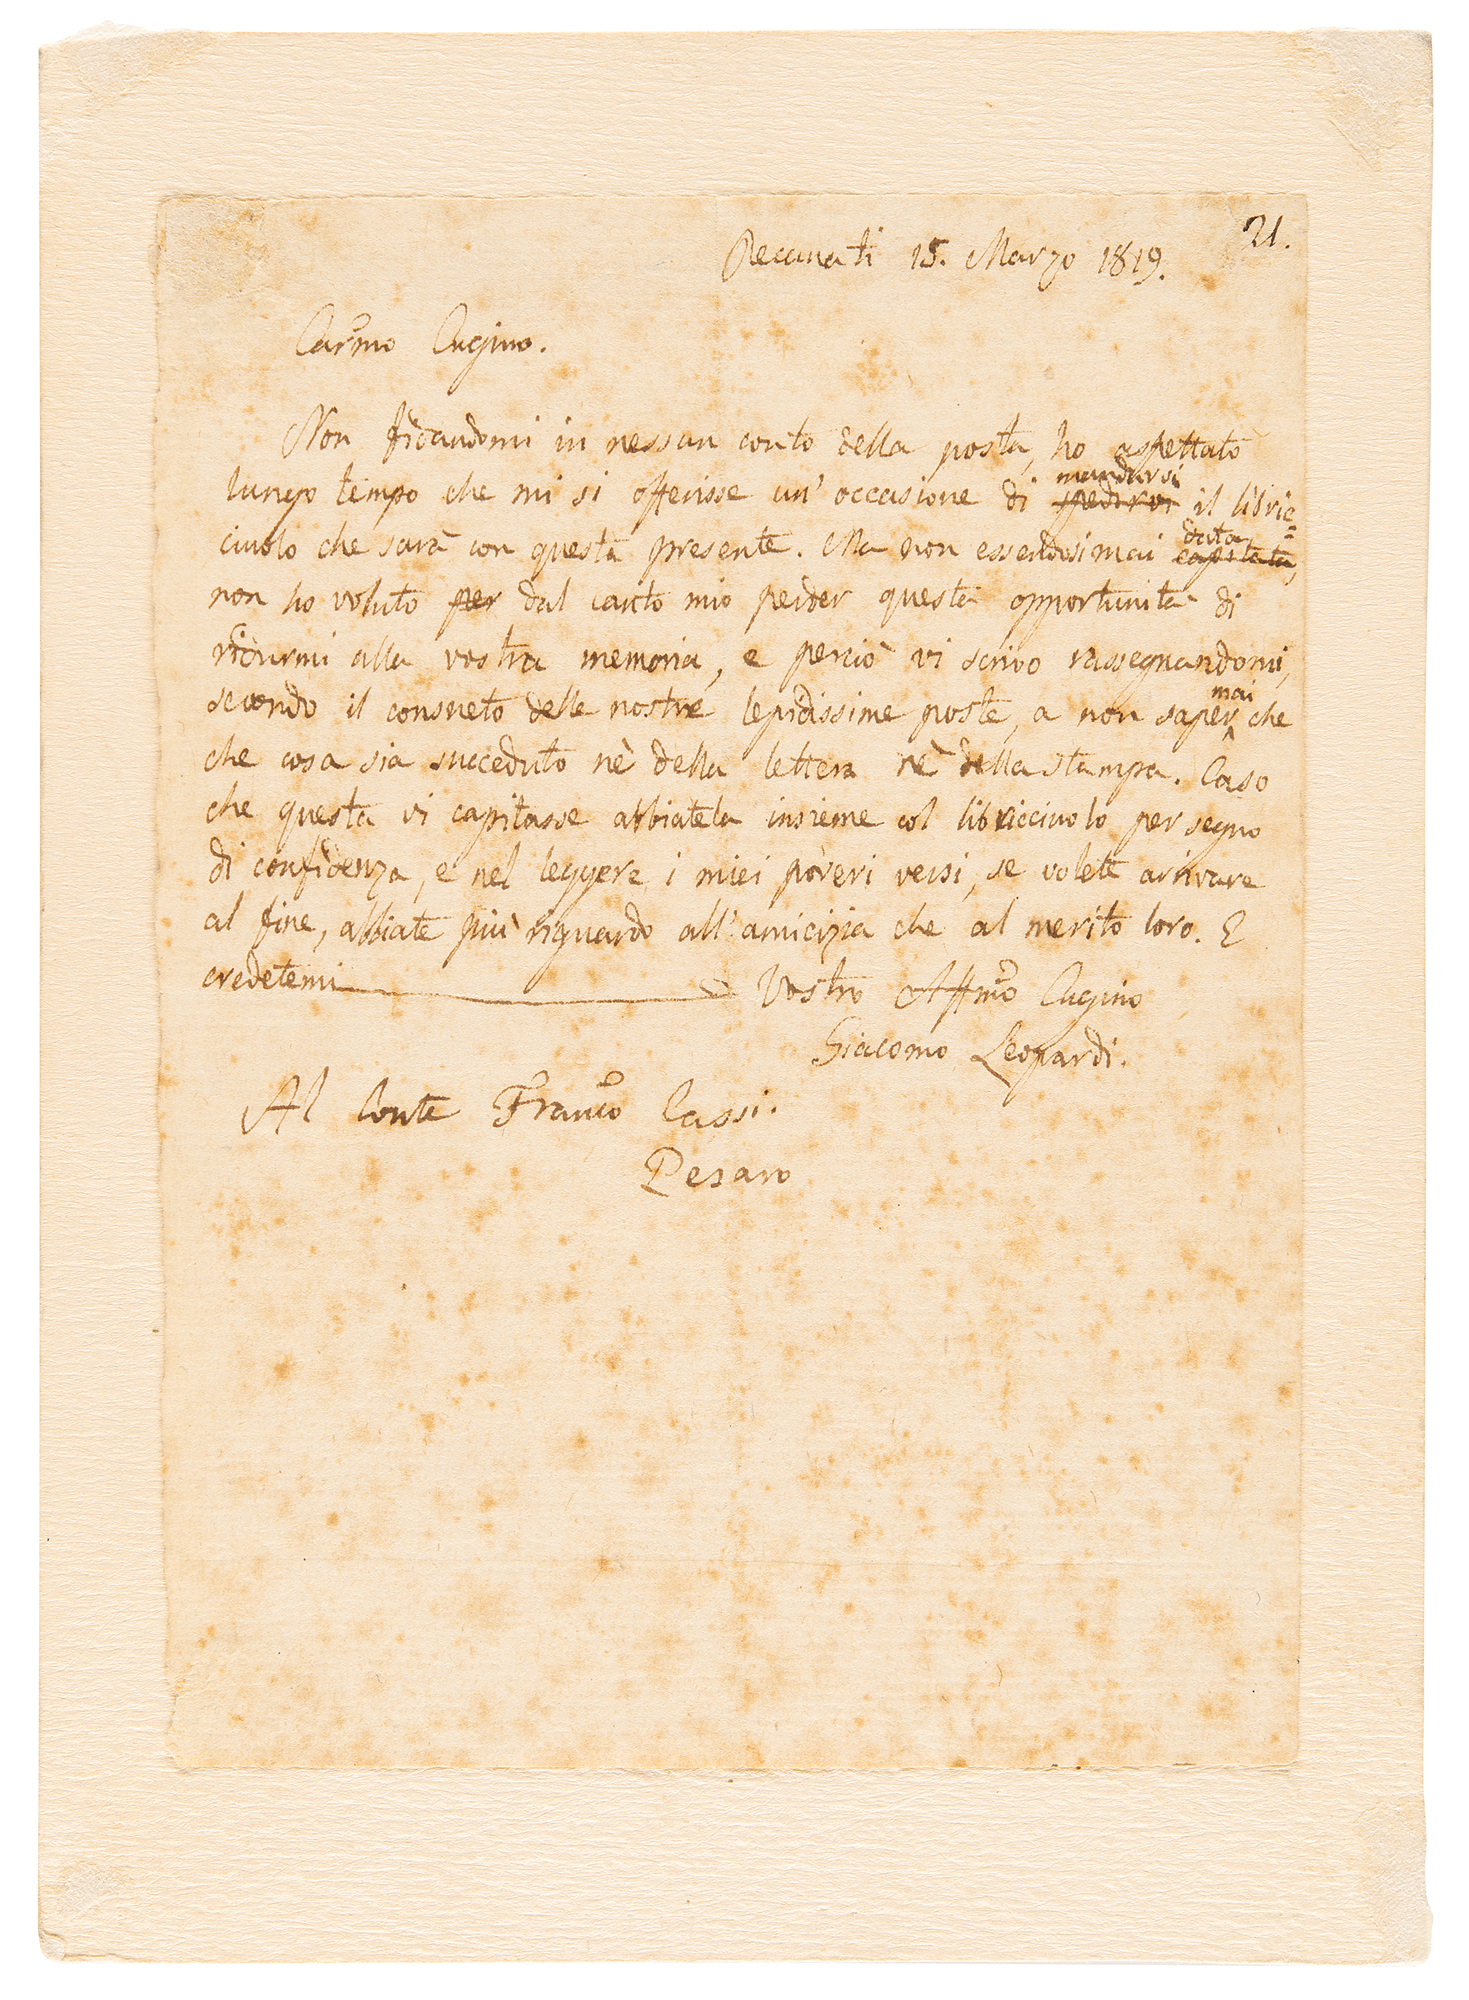 21.
Recanati 15. Marzo 1819.
Carmo Cugino.
Non fidandomi in nessun conto della posta, ho aspettato
mandarvi
lungo tempo che mi si offerisse un' occasione di spedirvi il libric=
data,
ciuolo che sarà con questa presente. Ma non essendosi mai capitata,
non ho voluto per dal canto mio perder questa opportunità di
ridurmi alla vostra memoria, e perciò vi scrivo rassegnandomi,
mai
secondo il consueto delle nostre lepidissime poste, a non saper che
che cosa sia succeduto nè della lettera nè della stampa. Caso
che questa vi capitasse abbiatela insieme col libricciuolo per segno
di confidenza, e nel leggere i miei poveri versi, se volete arrivare
al fine, abbiate più riguardo all' amicizia che al merito loro. E
credetemi Vostro Affmo Cugino
Giacomo Leopardi.
Al Conte Franco Cassi.
Pesaro